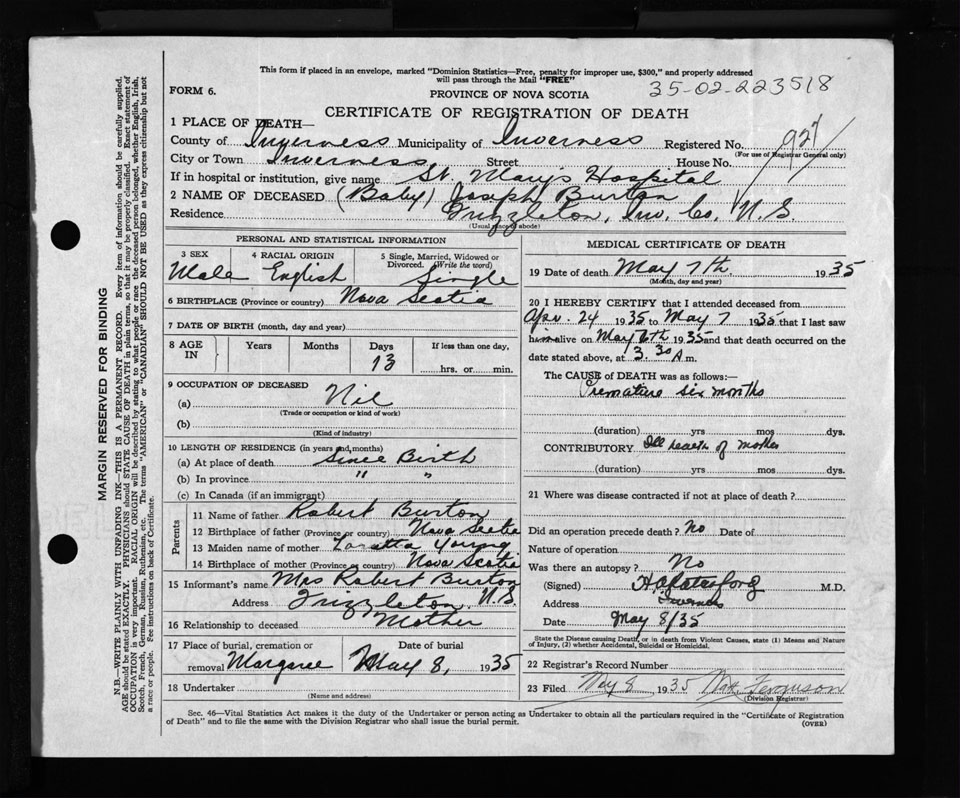 This form if placed in an envelope, marked "Dominion Statistics—Free, penalty for improper use, $300," and properly addressed
will pass through the Mail "FREE"
35-02-223518
FORM 6.
PROVINCE OF NOVA SCOTIA
CERTIFICATE OF REGISTRATION OF DEATH
1 PLACE OF DEATH—
County of Inverness Municipality of Inverness Registered No. 927
(For use of Registrar General only)
City or Town Inverness Street House No.
If in hospital or institution, give name St. Marys Hospital
2 NAME OF DECEASED (Baby) Joseph Burton
Residence Frizzleton, Inv. Co. N.S.
(Usual place of abode)
PERSONAL AND STATISTICAL INFORMATION
3 SEX 4 RACIAL ORIGIN 5 Single, Married, Widowed or
Divorced. (Write the word)
Male English Single
6 BIRTHPLACE (Province or country) Nova Scotia
7 DATE OF BIRTH (month, day and year)
8 AGE IN Years Months Days If less than one day,
13 hrs. or min.
9 OCCUPATION OF DECEASED
(a) Nil
(Trade or occupation or kind of work)
(b)
(Kind of industry)
10 LENGTH OF RESIDENCE (in years and months)
(a) At place of death Since Birth
(b) In province " "
(c) In Canada (if an immigrant)
Parents
11 Name of father Robert Burton
12 Birthplace of father (Province or country) Nova Scotia
13 Maiden name of mother Loratta Young
14 Birthplace of mother (Province or country) Nova Scotia
15 Informant's name Mrs Robert Burton
Address Frizzleton, N.S.
16 Relationship to deceased Mother
17 Place of burial, cremation or Date of burial
removal Margaree May 8, 1935
18 Undertaker
(Name and address)
MEDICAL CERTIFICATE OF DEATH
19 Date of death May 7th 1935
(Month, day and year)
20 I HEREBY CERTIFY that I attended deceased from
Apr. 24 1935 to May 7 1935 that I last saw
him alive on May 6th 1935 and that death occurred on
date stated above, at 3.30 A m.
The CAUSE of DEATH was as follows:—
Premature six months
(duration) yrs mos dys.
CONTRIBUTORY Ill health of mother
(duration) yrs mos dys.
21 Where was disease contracted if not at place of death?
Did an operation precede death? No Date of
Nature of operation
Was there an autopsy? No
(Signed) M.D.
Address Inverness
Date May 8/35
State the Disease causing Death, or in death from Violent Causes, state (1) Means and Nature
of Injury, (2) whether Accidental, Suicidal or Homicidal.
22 Registrar's Record Number
23 Filed May 8 1935 Ferguson
(Division Registrar)
Sec. 46—Vital Statistics Act makes it the duty of the Undertaker or person acting as Undertaker to obtain all the particulars required in the "Certificate of Registration
of Death" and to file the same with the Division Registrar who shall issue the burial permit.
(OVER)
MARGIN RESERVED FOR BINDING
N.B.—WRITE PLAINLY WITH UNFADING INK—THIS IS A PERMANENT RECORD. Every item of information should be carefully supplied.
AGE should be stated EXACTLY. PHYSICIANS should STATE CAUSE OF DEATH in plain terms, so that it may be properly classified. Exact statement of
OCCUPATION is very important. RACIAL ORIGIN will be described by stating to what people or race the deceased person belonged, whether English, Irish,
Scotch, French, German, Russian, Ruthenian, etc. The terms "AMERICAN" or "CANADIAN" SHOULD NOT BE USED as they express citizenship but not
a race or people. See instructions on back of Certificate.